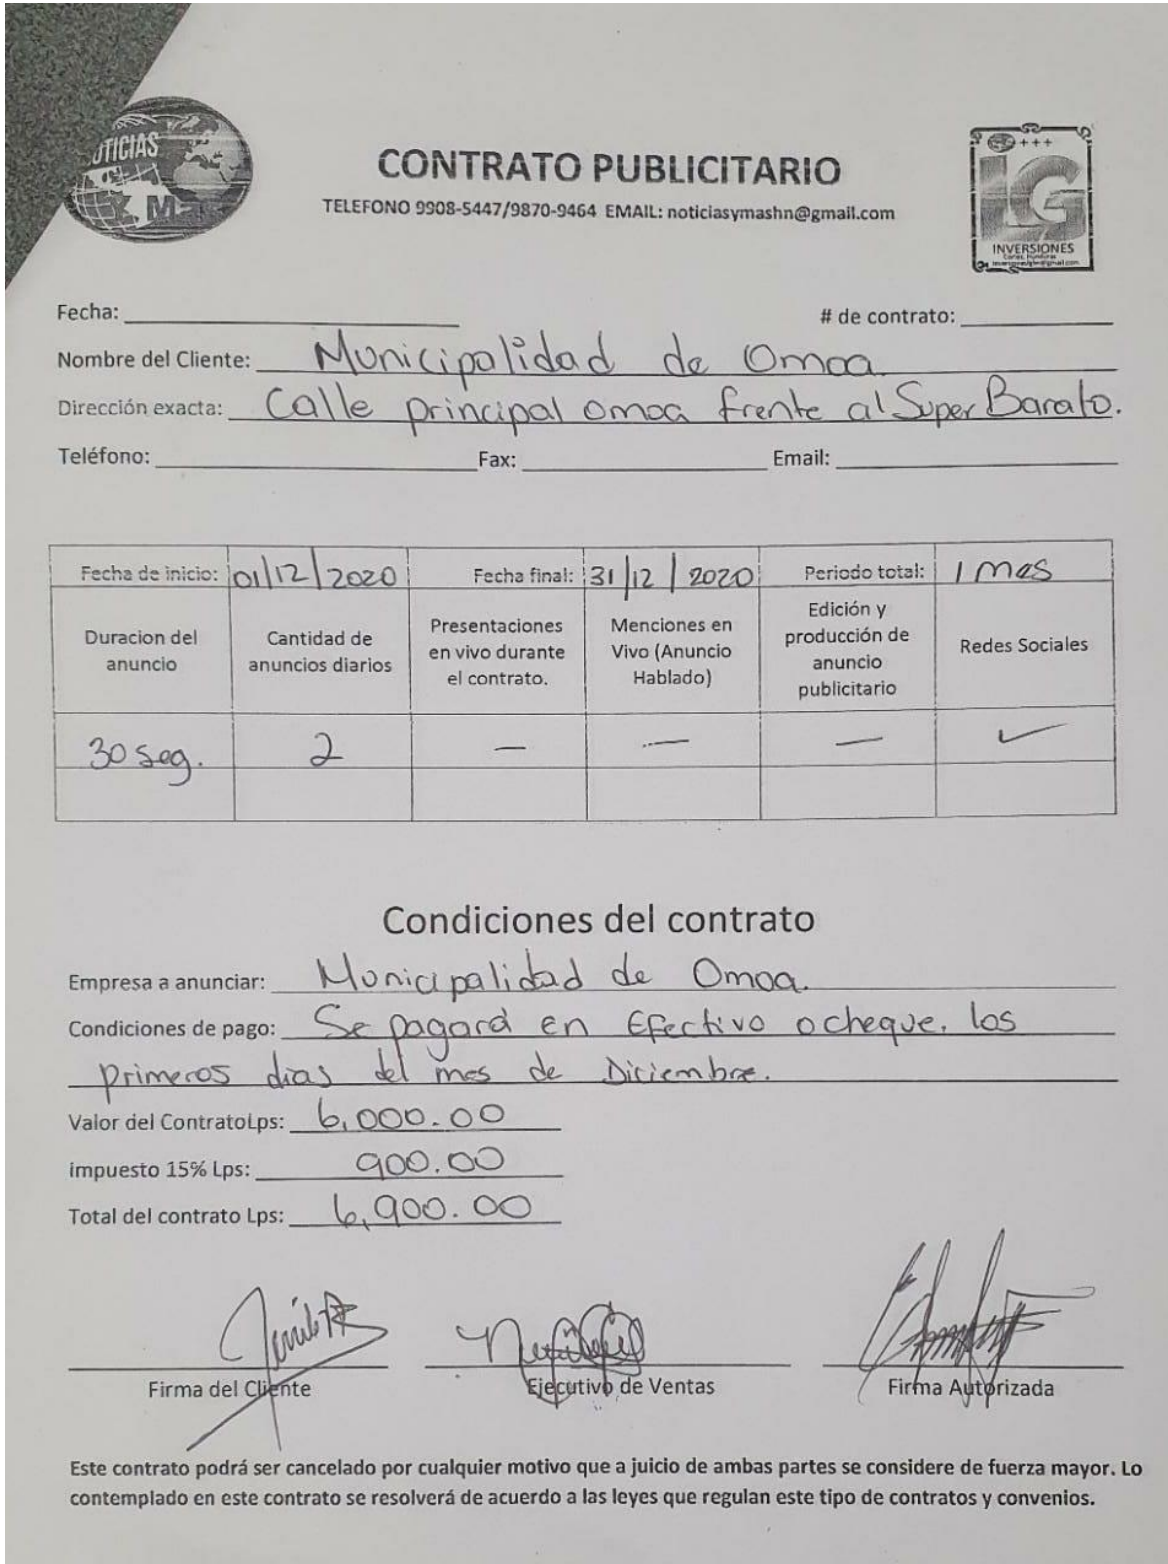 NOTICIAS
CONTRATO PUBLICITARIO
TELEFONO 9908-5447/9870-9464 EMAIL: noticiasymashn@gmail.com
LG
INVERSIONES
Fecha:
# de contrato:
Nombre del Cliente: Municipalidad de Omoa.
Dirección exacta: Calle principal omoa frente al Super Barato.
Teléfono: Fax: Email:
Fecha de inicio: 01/12/2020 Fecha final: 31/12/2020 Periodo total: 1 mes
Duracion del anuncio
Cantidad de anuncios diarios
Presentaciones en vivo durante el contrato.
Menciones en Vivo (Anuncio Hablado)
Edición y producción de anuncio publicitario
Redes Sociales
30 seg. 2 — — — ✓
Condiciones del contrato
Empresa a anunciar: Municipalidad de Omoa.
Condiciones de pago: Se pagará en Efectivo o cheque. los
primeros dias del mes de Diciembre.
Valor del ContratoLps: 6,000.00
impuesto 15% Lps: 900.00
Total del contrato Lps: 6,900.00
Firma del Cliente Ejecutivo de Ventas Firma Autorizada
Este contrato podrá ser cancelado por cualquier motivo que a juicio de ambas partes se considere de fuerza mayor. Lo
contemplado en este contrato se resolverá de acuerdo a las leyes que regulan este tipo de contratos y convenios.